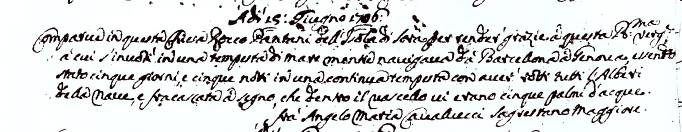 Adi 15. Giugno 1706.
Comparve in questa Chiesa Rocco Pianteni dell'Isola di Sora per render grazie à questa SS.ma Verg.e
à cui s'invotì in una tempesta di mare mentre navigava da Barcellona à Genova, essendo
stato cinque giorni, e cinque notti in una continua tempesta con aver rotti tutti l'Alberi
della Nave, e fracassata à segno, che dentro il vascello vi erano cinque palmi d'acque.
frà Angelo Maria Cavallucci Sagrestano Maggiore.